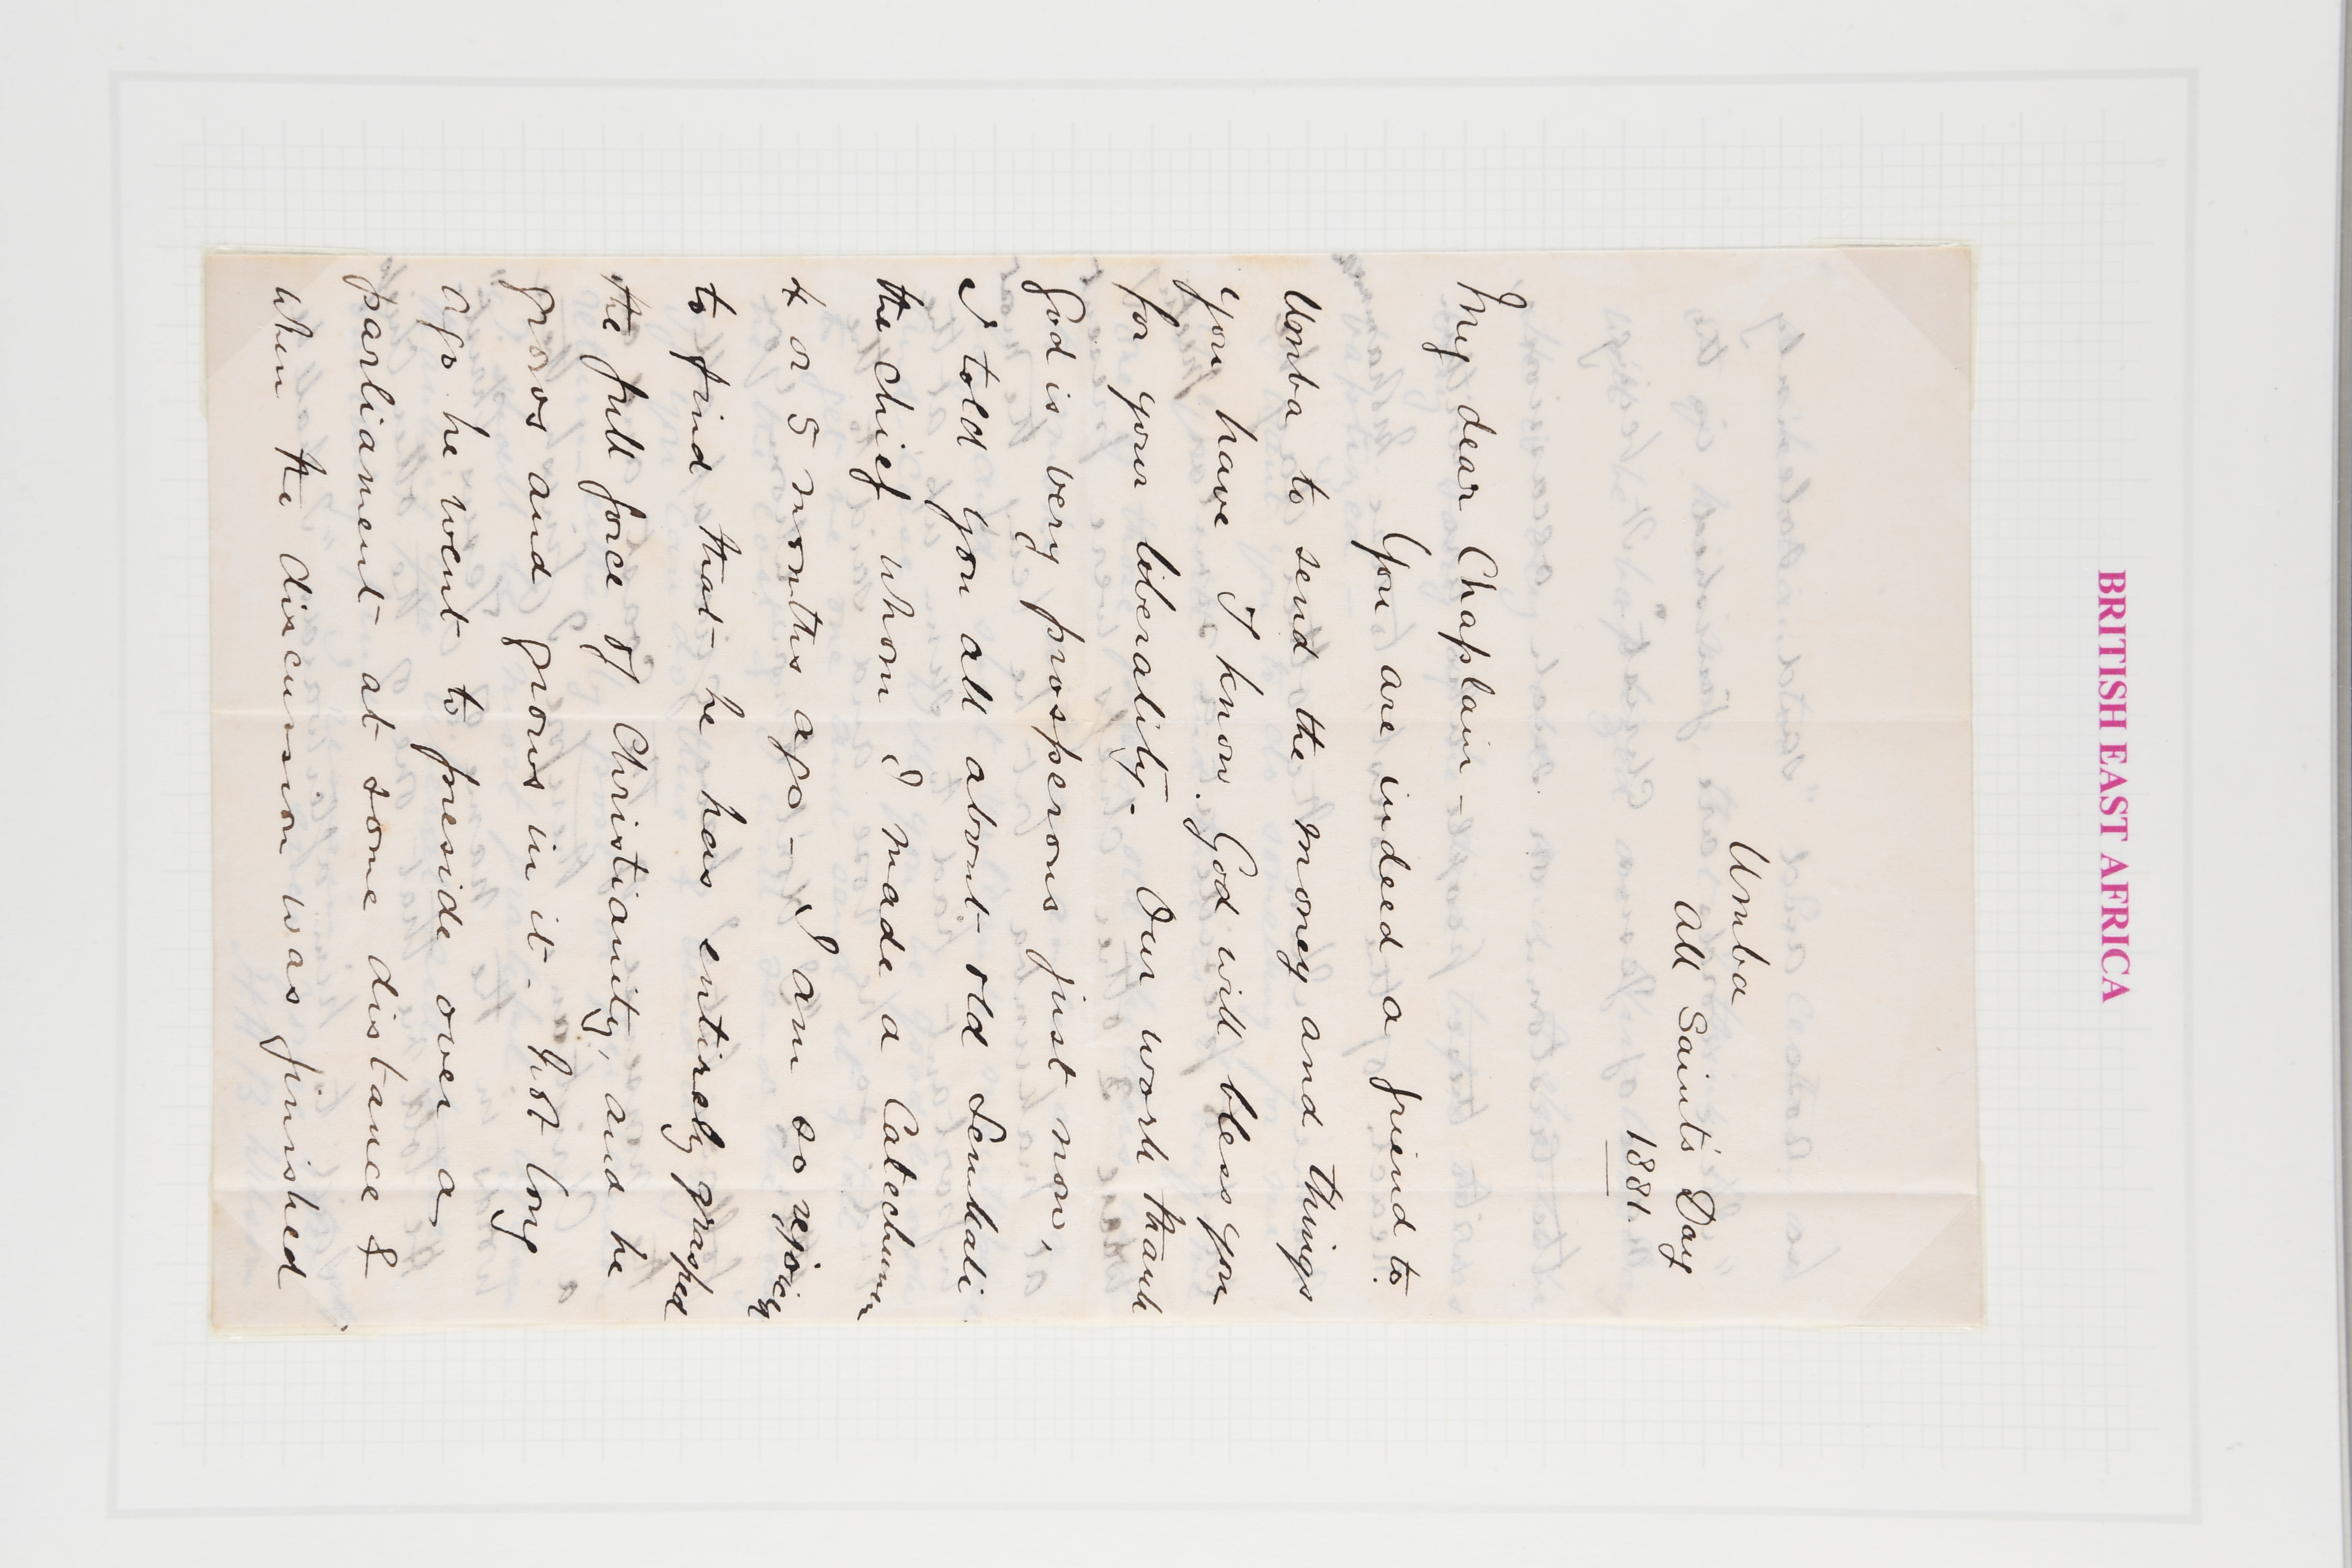 BRITISH EAST AFRICA
Umba
All Saints Day
1881
My dear Chaplain -
You are indeed a friend to
Umba to send the money and things
you have I know. God will bless you
for your liberality. Our work thank
God is very prosperous just now,
I told you all about old Semkali
the chief whom I made a Catechumen
4 or 5 months ago - I am so rejoicing
to find that he has entirely grasped
the full force of Christianity, and he
grows and grows in it - Not long
ago he went to preside over a
parliament at some distance &
when the discussion was finished